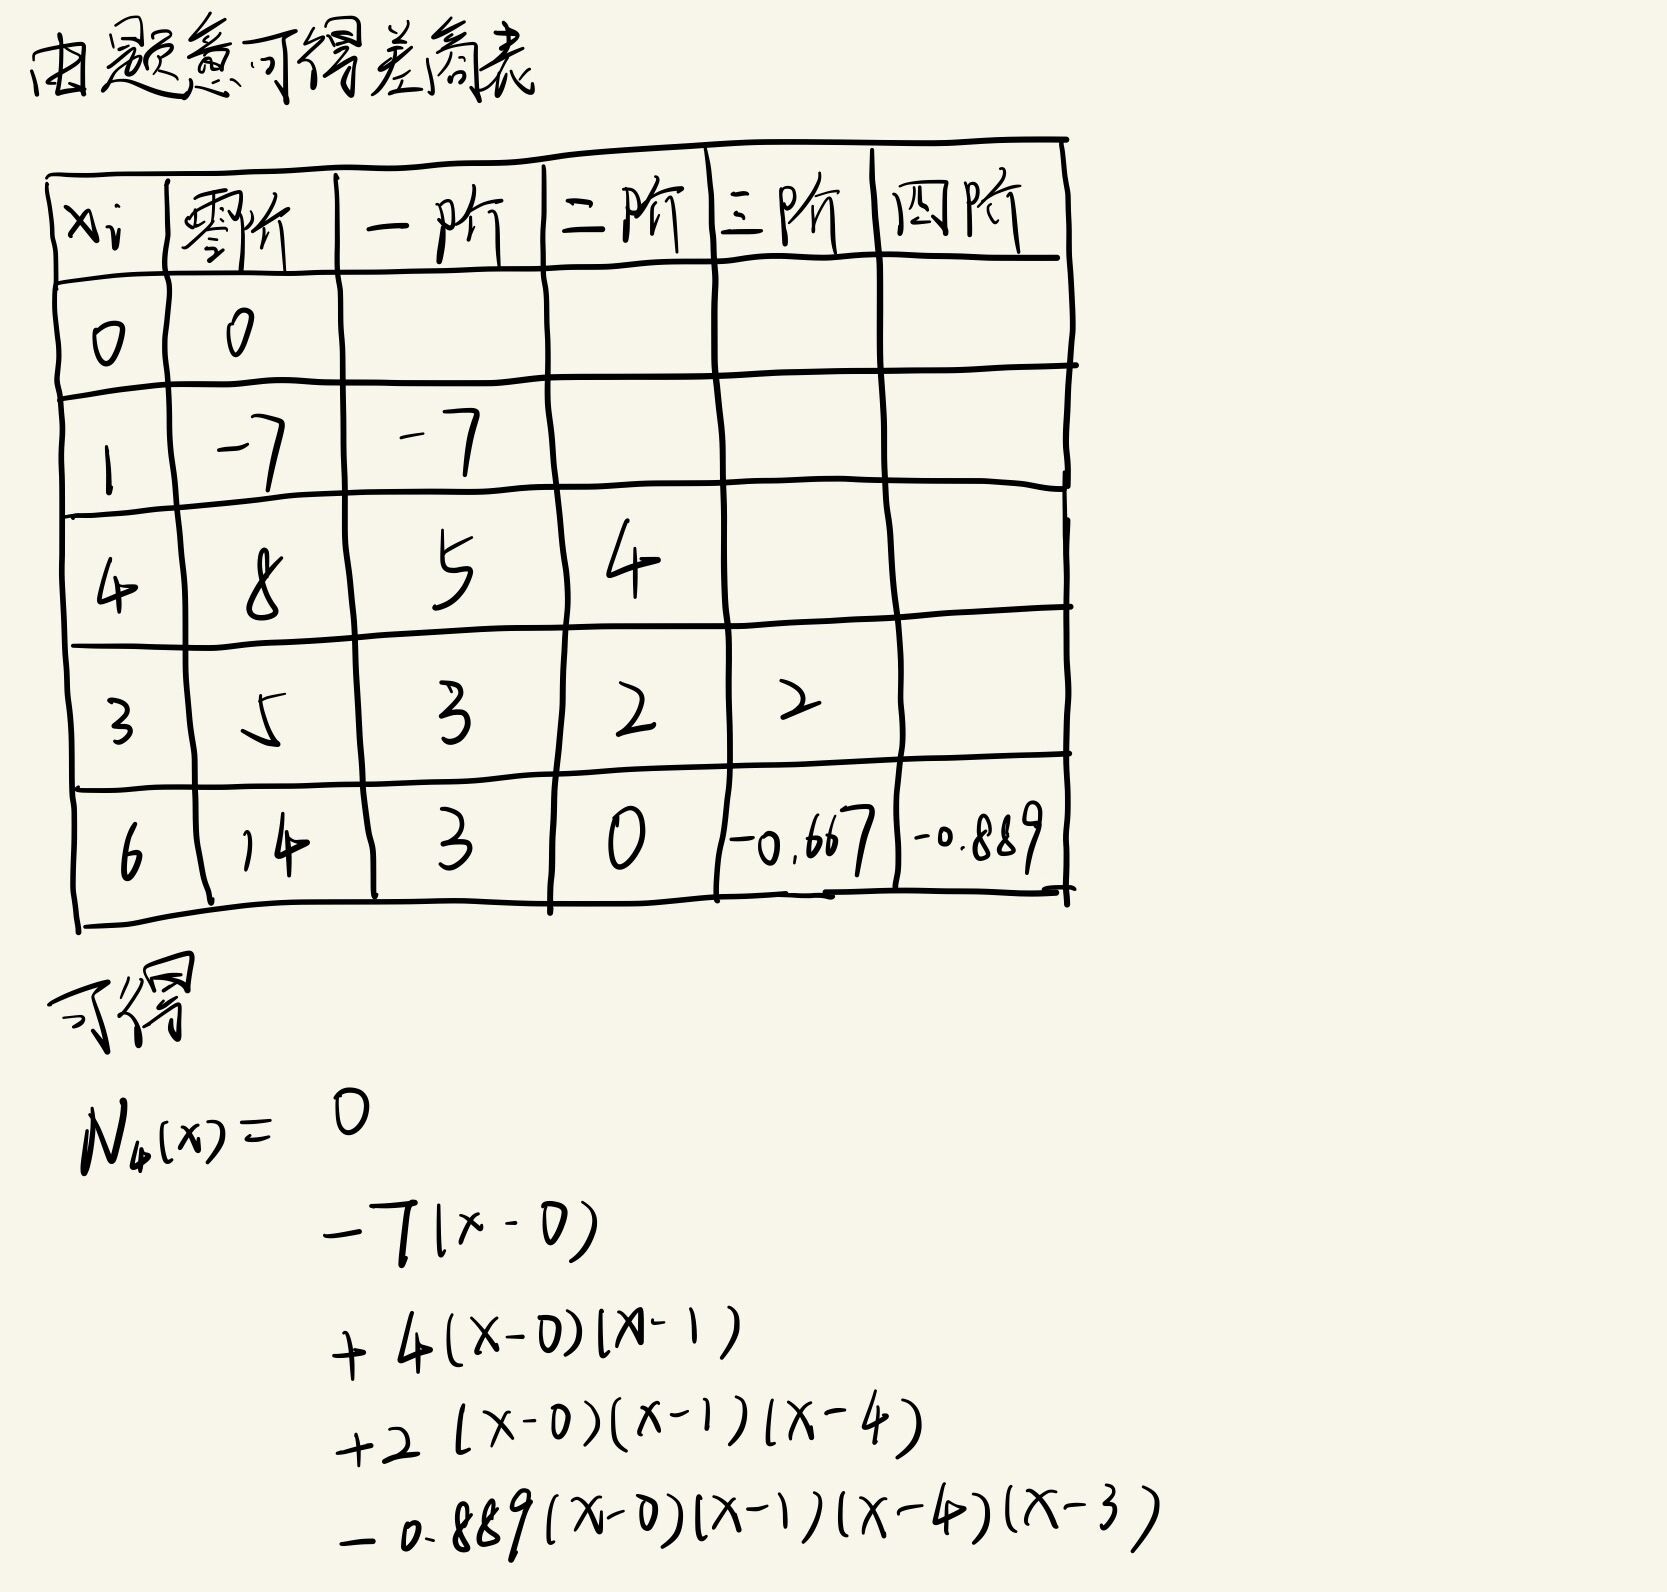 由题意可得差商表
xi 零阶 一阶 二阶 三阶 四阶
0 0
1 -7 -7
4 8 5 4
3 5 3 2 2
6 14 3 0 -0.667 -0.889
可得
N4(x)= 0
-7(x-0)
+4(x-0)(x-1)
+2(x-0)(x-1)(x-4)
-0.889(x-0)(x-1)(x-4)(x-3)